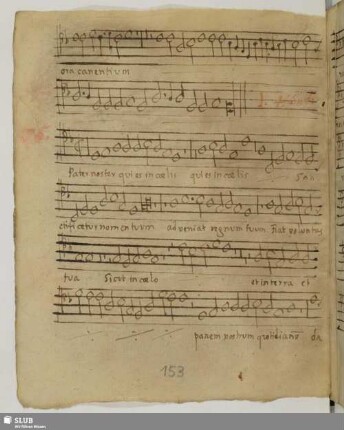 ora canentium
Pater noster qui es in coelis qui es in coelis San
ctificetur nomen tuum adveniat regnum tuum Fiat voluntas
tua Sicut in coelo et in terra et
panem nostrum quotidianū da
153
SLUB
Wir führen Wissen.